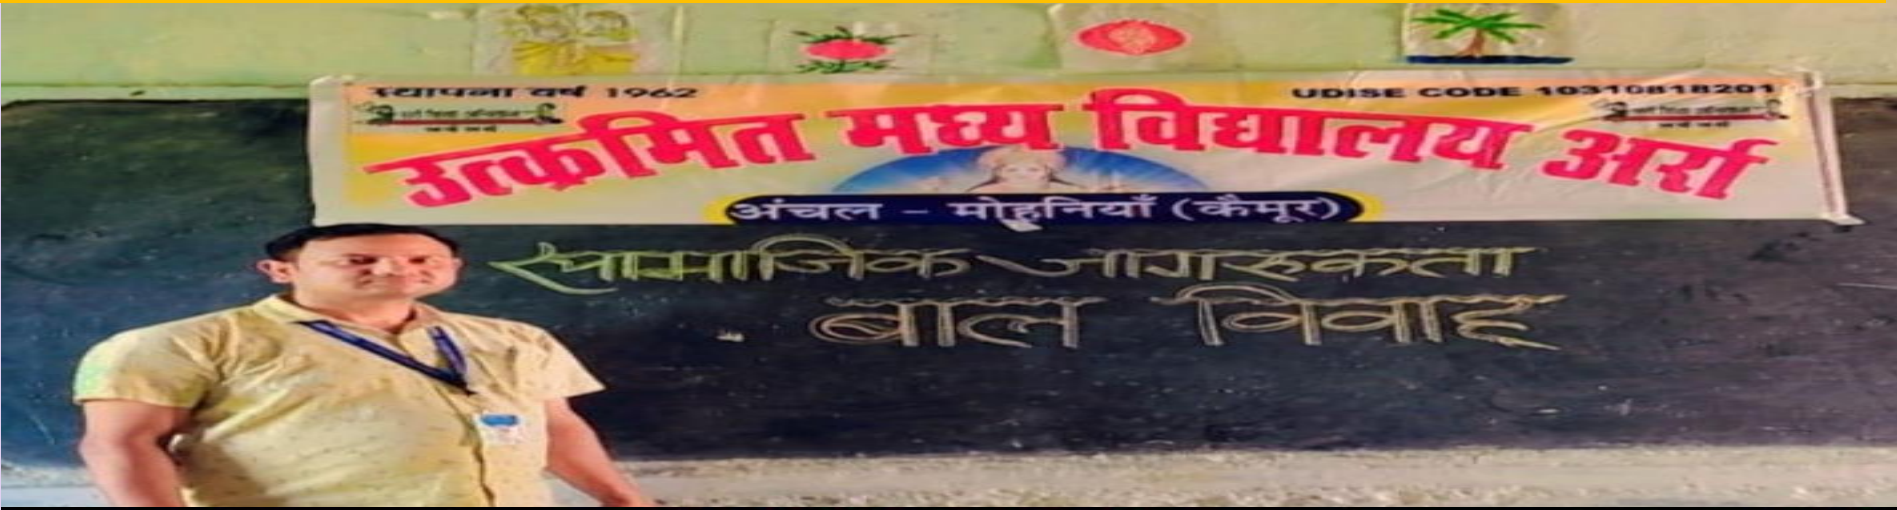 स्थापना वर्ष 1962
UDISE CODE 10310818201
उत्क्रमित मध्य विद्यालय अर्रा
अंचल - मोहनियाँ (कैमूर)
सामाजिक जागरुकता
बाल विवाह